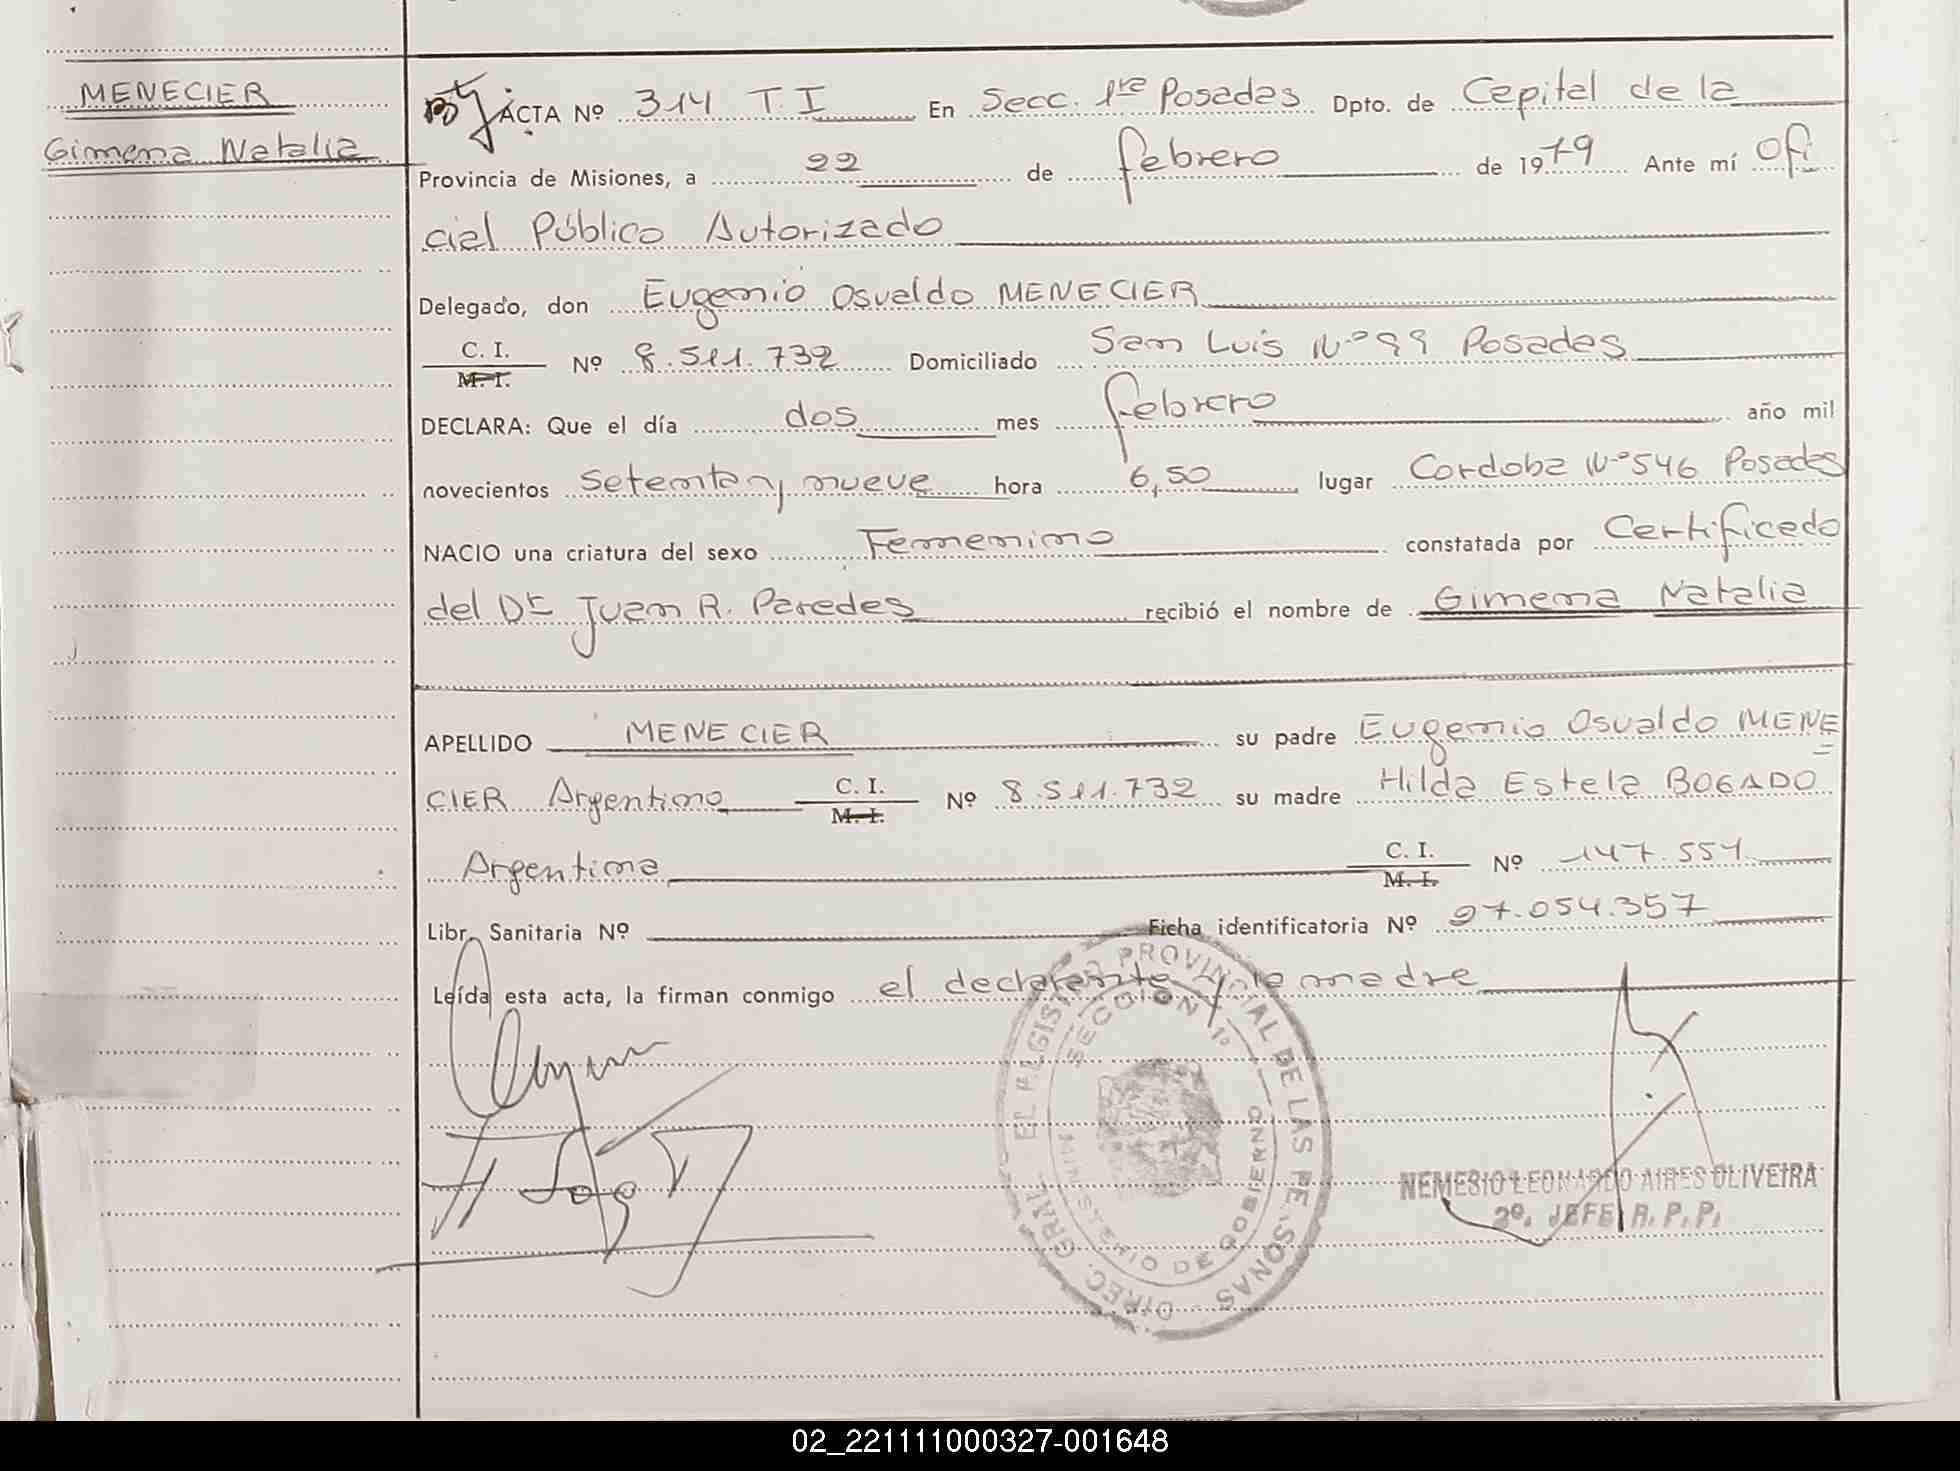 MENECIER
Gimena Natalia
ACTA Nº 314 T. I En Secc. 1ra Posadas Dpto. de Capital de la
Provincia de Misiones, a 22 de febrero de 1979 Ante mí Ofi
cial Público Autorizado
Delegado, don Eugenio Osvaldo MENECIER
C. I.
M. I. Nº 8.511.732 Domiciliado San Luis Nº 99 Posadas
DECLARA: Que el día dos mes febrero año mil
novecientos setenta y nueve hora 6,50 lugar Cordoba Nº 546 Posadas
NACIO una criatura del sexo Femenino constatada por Certificado
del Dr Juan R. Paredes recibió el nombre de Gimena Natalia
APELLIDO MENECIER su padre Eugenio Osvaldo MENE
CIER Argentino C. I. M. I. Nº 8.511.732 su madre Hilda Estela BOGADO
Argentina C. I. M. I. Nº 147.551
Libr. Sanitaria Nº Ficha identificatoria Nº 97.054.357
Leída esta acta, la firman conmigo el declarante y la madre
DIREC. GRAL. EL REGISTRO PROVINCIAL DE LAS PERSONAS
SECCION 1º
MINISTERIO DE GOBIERNO
NEMESIO LEONARDO AIRES OLIVEIRA
2º. JEFE R. P. P.
02_221111000327-001648